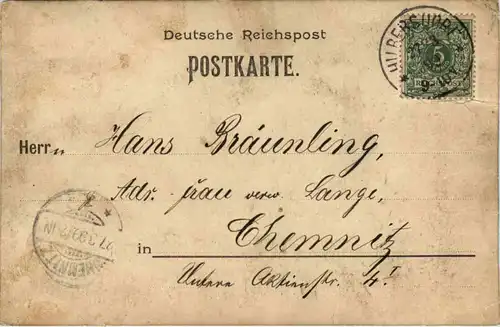 Deutsche Reichspost
POSTKARTE.
HILBERSDORF
5
9-10
Herrn Hans Bräunling,
Adr. Frau verw. Lange,
in Chemnitz
Untere Aktienstr. 4 I
CHEMNITZ